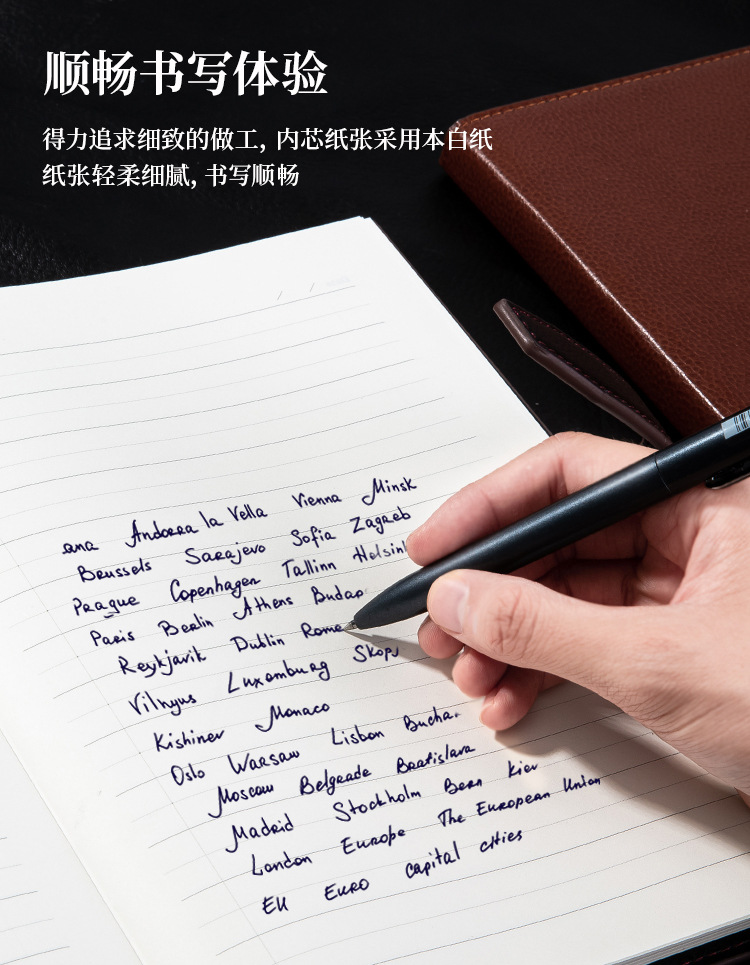 顺畅书写体验
得力追求细致的做工，内芯纸张采用本白纸
纸张轻柔细腻，书写顺畅
ana Andorra la Vella Vienna Minsk
Brussels Sarajevo Sofia Zagreb
Prague Copenhagen Tallinn Helsin
Paris Berlin Athens Budap
Reykjavik Dublin Rome
Vilnyus Luxemburg Skopj
Kishinev Monaco
Oslo Warsaw Lisbon Bucha
Moscow Belgrade Bratislava
Madrid Stockholm Bern Kiev
London Europe The European Union
EU EURO capital cities